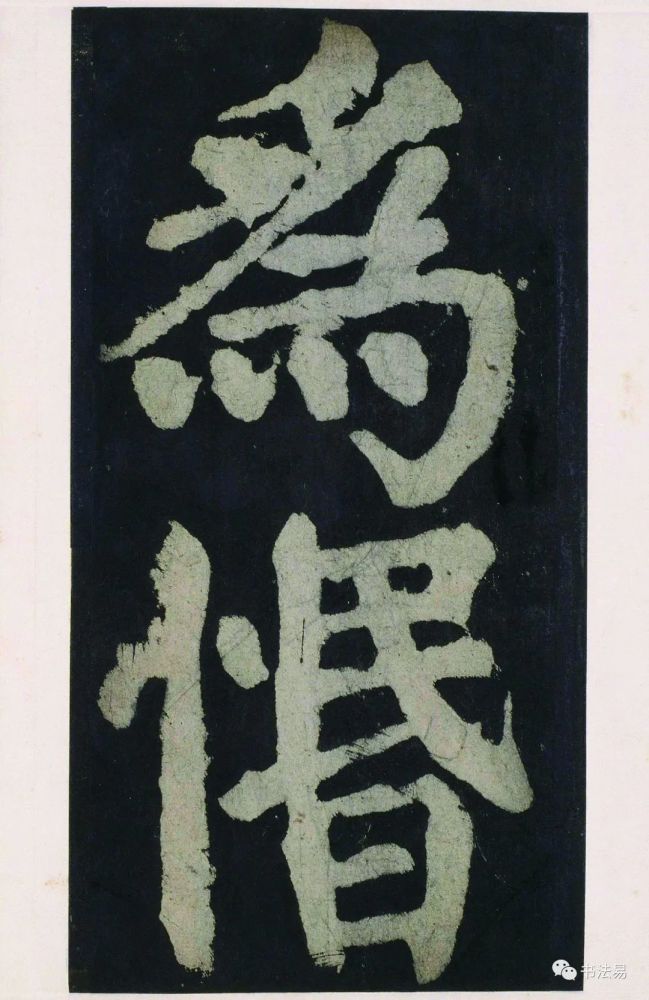 為
惽
书法易